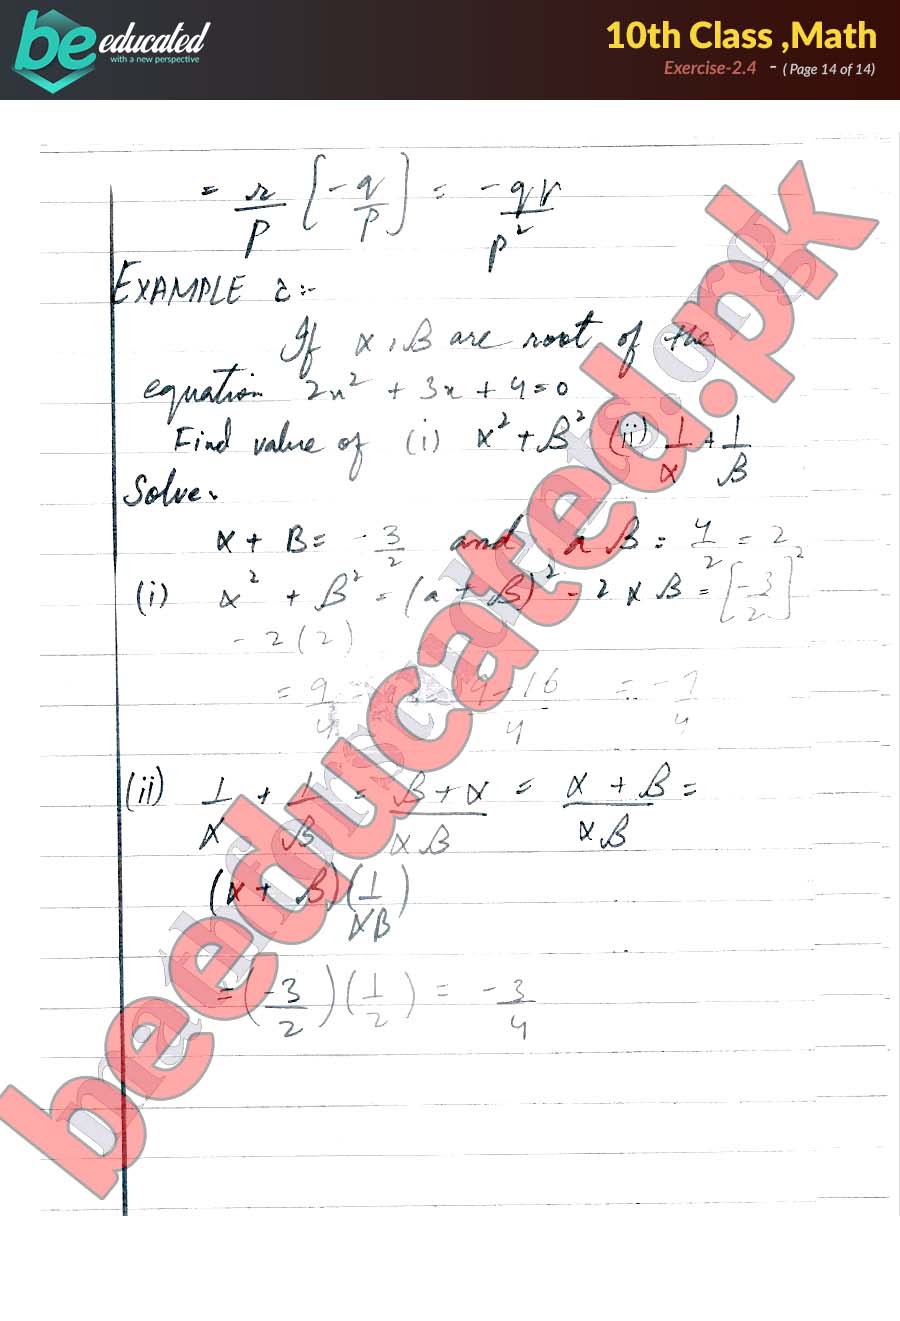 be educated
with a new perspective
10th Class ,Math
Exercise-2.4 - ( Page 14 of 14)
= r/p [-q/p] = -qr/p²
EXAMPLE 2:-
If α, β are root of the
equation 2x² + 3x + 4 = 0
Find value of (i) α² + β² (ii) 1/α + 1/β
Solve.
α + β = -3/2 and α β = 4/2 = 2
(i) α² + β² = (α + β)² - 2 α β = [-3/2]²
- 2 ( 2 )
= 9/4 - 9-16/4 = -7/4
(ii) 1/α + 1/β = β + α/αβ = α + β/αβ =
(α + β) (1/αβ)
= (-3/2) (1/2) = -3/4
beeducated.pk